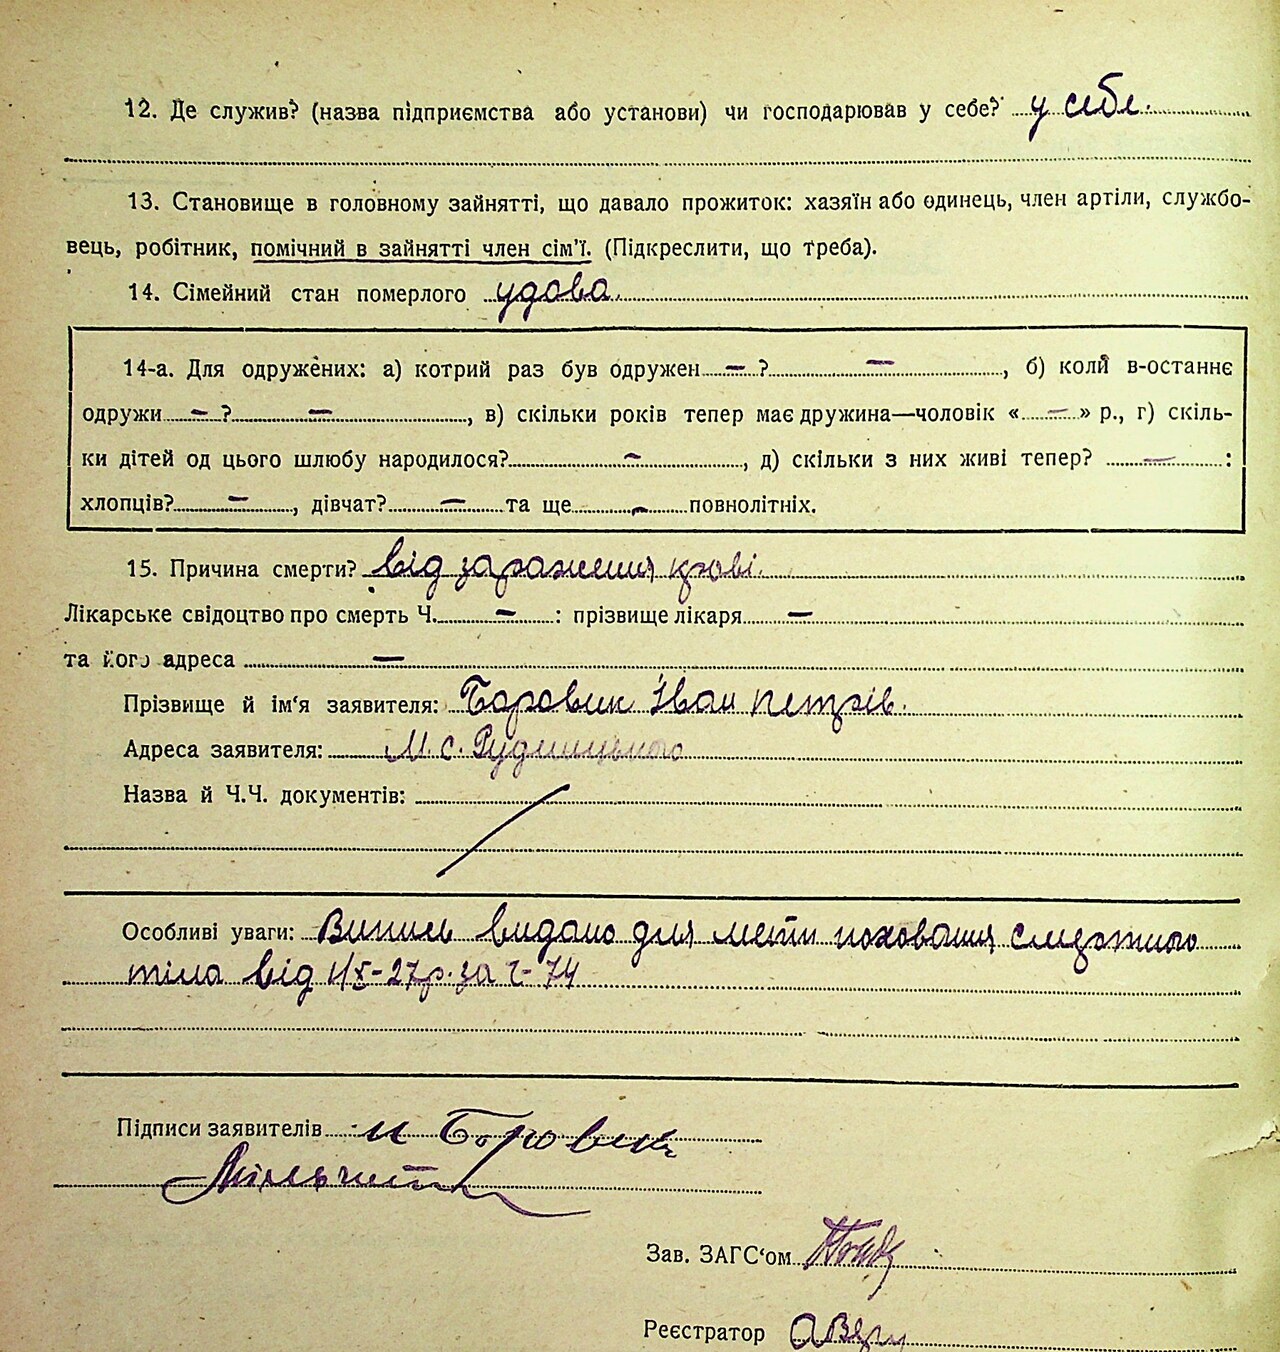 12. Де служив? (назва підприємства або установи) чи господарював у себе? у себе.
13. Становище в головному зайнятті, що давало прожиток: хазяїн або одинець, член артіли, службо-
вець, робітник, помічний в зайнятті член сім'ї. (Підкреслити, що треба).
14. Сімейний стан померлого удова.
14-а. Для одружених: а) котрий раз був одружен — ? —, б) коли в-останнє
одружи — ? —, в) скільки років тепер має дружина—чоловік « — » р., г) скіль-
ки дітей од цього шлюбу народилося? —, д) скільки з них живі тепер? — :
хлопців? —, дівчат? — та ще — повнолітніх.
15. Причина смерти? від зараження крові.
Лікарське свідоцтво про смерть Ч. — : прізвище лікаря —
та його адреса —
Прізвище й ім'я заявителя: Боровик Іван Петрів.
Адреса заявителя: М. С. Рудницького
Назва й Ч.Ч. документів:
Особливі уваги: Випись видано для мети поховання смертного
тіла від 1/X-27р. за ч- 74
Підписи заявителів и Боровик
Зав. ЗАГС'ом
Реєстратор